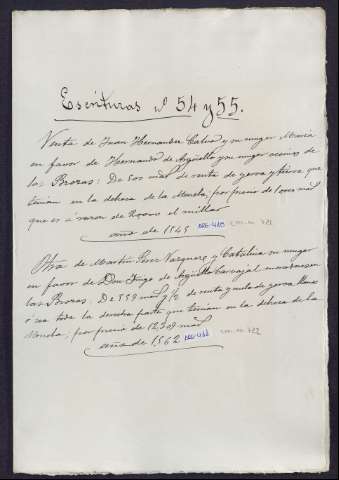 Escrituras nº 54 y 55.
Venta de Juan Hernandez Calvo y su muger María
en favor de Hernando de Argüello y su muger vecinos de
las Brozas: De 500 mrs de renta de yerva y tierra que
tenian en la dehesa de la Moheda; por precio de 10000 mrs
que es á razon de 20000 el millar
año de 1545
Otra de Martin Perez Vazquez y Catalina su muger
en favor de Don Diego de Argüello Carvajal
las Brozas: De 559 mrs y ½ de renta y de yerva
ó sea toda la derecha parte que tenian en la dehesa de la
Moheda; por precio de 12,308 mrs
año de 1562